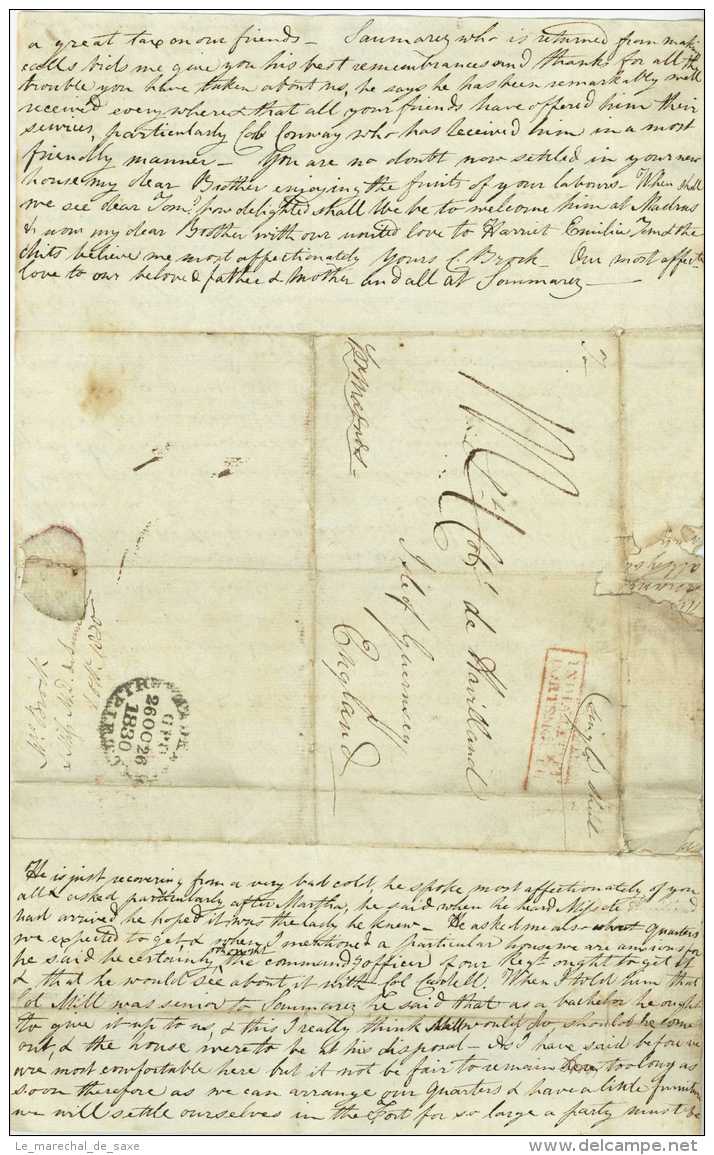 a great tax on our friends – Saumarez who is returned from maki
calls bids me give you his best remembrances and thanks for all the
trouble you have taken about us, he says he has been remarkably well
received everywhere & that all your friends have offered him their
services, particularly Col Conway who has received him in a most
friendly manner – You are no doubt now settled in your new
house my dear Brother enjoying the fruits of your labours – When shall
we see dear Tom? how delighted shall we be to welcome him at Madras
& now my dear Brother with our united love to Harriet Emilia Tom & the
chits believe me most affectionately Yours C Brock – Our most affecte
love to our beloved father & Mother and all at Sommarez –
Lt Colol de Havilland
Isle of Guernsey
England
Single Sheet
INDIA LETTER
PORTSMOUTH
Mrs Brock
26 OC 26
1830
He is just recovering from a very bad cold, he spoke most affectionately of you
all & asked particularly after Martha, he said when he heard Miss de
had arrived he hoped it was the lady he knew – He asked me also what quarters
we expected to get & when I mentioned a particular house we are anxious for
he said he certainly thought the commandg officer of our Regt ought to get it
& that he would see about it with Col Cadell. When I told him that
Col Mill was senior to Saumarez he said that as a bachelor he ought
to give it up to us, & this I really think Mill would do, should he come
out, & the house were to be at his disposal – As I have said before we
are most comfortable here but it not be fair to remain here too long as
soon therefore as we can arrange our quarters & have a little furniture
we will settle ourselves in the Fort for so large a party must be
Le_marechal_de_saxe
www.delcampe.net